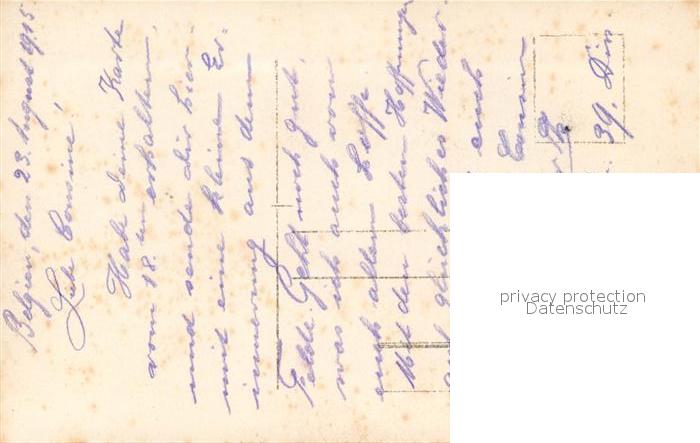 Belgien, den 23. August 1915.
Liebe Cousine,
Habe deine Karte
vom 18. ten erhalten,
und sende dir hier-
mit eine kleine Er-
innerung aus dem
Felde. Geht noch gut,
was ich auch von
euch allen hoffe.
Mit den besten Hoffnungen
auf glückliches Wieder-
euch
Cousin
39. Div.
privacy protection
Datenschutz